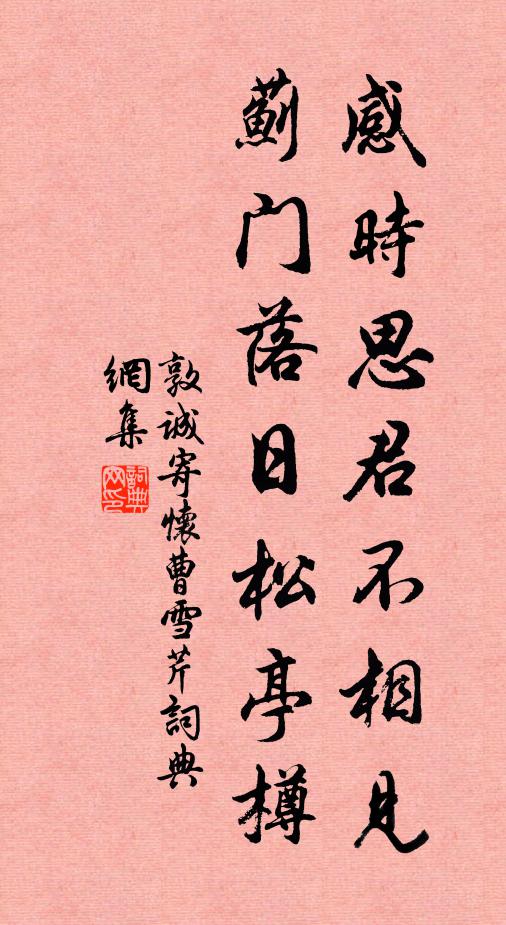 感時思君不相見
薊门落日松亭樽
敦誠寄懷曹雪芹詞典
網集
詞典
网印